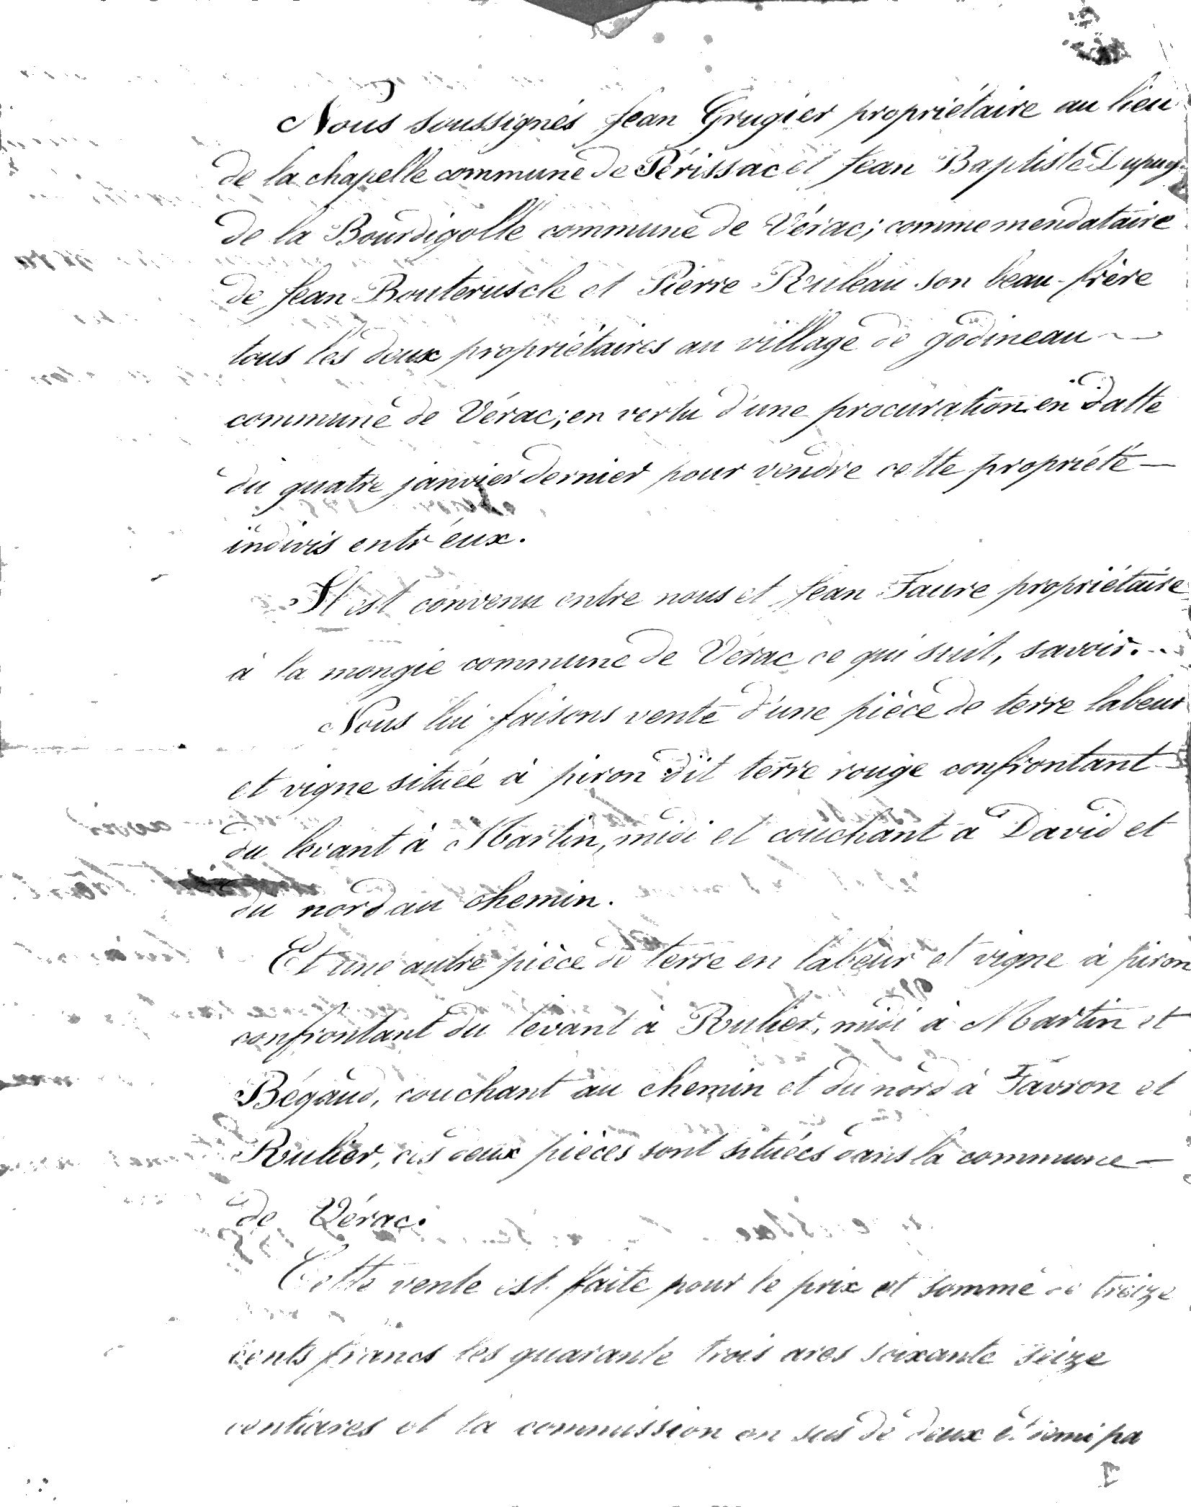 Nous soussignés Jean Grugier propriétaire au lieu
de la chapelle commune de Périssac et Jean Baptiste Dupuy
de la Bourdigolle commune de Vérac; comme mendataire
de Jean Bouterusch et Pierre Ruleau son beau-frère
tous les deux propriétaires au village de godineau
commune de Vérac; en vertu d'une procuration en datte
du quatre janvier dernier pour vendre cette propriété —
indivis entr'eux.
Il est convenu entre nous et Jean Faure propriétaire
à la mongie commune de Vérac ce qui suit, savoir.
Nous lui faisons vente d'une pièce de terre labeur
et vigne située à piron dit terre rouge confrontant
du levant à Martin, midi et couchant à David et
du nord au chemin.
Et une autre pièce de terre en labeur et vigne à piron
confrontant du levant à Rulier, midi à Martin et
Bégaud, couchant au chemin et du nord à Favron et
Rulier, ces deux pièces sont situées dans la commune —
de Vérac.
Cette vente est faite pour le prix et somme de treize
cents francs les quarante trois ares soixante seize
centiares et la commission en sus de deux et demi pa